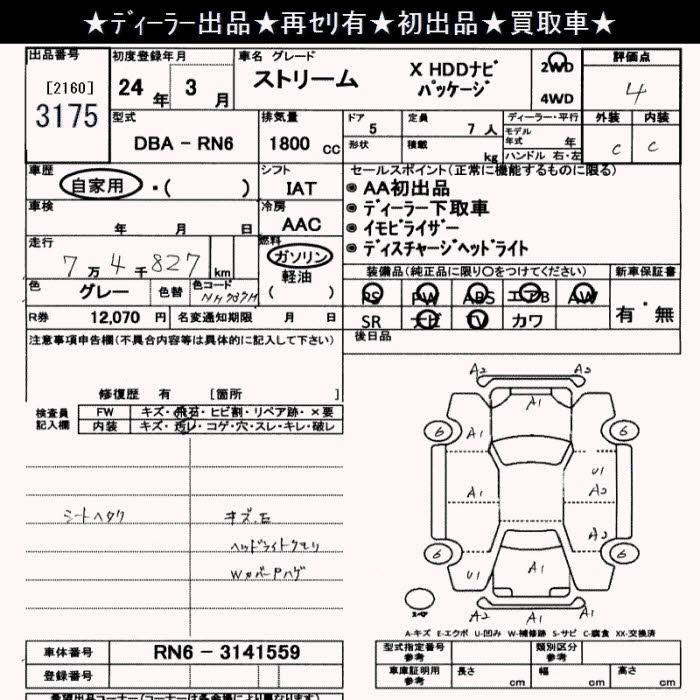 ★ディーラー出品★再セリ有★初出品★買取車★
出品番号 初度登録年月 車名 グレード 評価点
[2160] 24 年 3 月 ストリーム X HDDナビ パッケージ 2WD 4WD 4
3175
型式 排気量 ドア 定員 ディーラー・平行 外装 内装
DBA - RN6 1800 cc 5 7 人 モデル年式 年 C C
形状 積載 kg ハンドル 右・左
車歴 シフト セールスポイント(正常に機能するものに限る)
自家用 ・( ) IAT ◉ AA初出品
車検 冷房 ◉ ディーラー下取車
年 月 日 AAC ◉ イモビライザー
走行 燃料 ◉ ディスチャージヘッドライト
7 万 4 千 827 km ガソリン 装備品(純正品に限り○をつけてください) 新車保証書
軽油
( )
色 グレー 色替 色コード NH737M PS PW ABS エアB AW 有・無
R券 12,070 円 名変通知期限 月 日 SR ナビ TV カワ
注意事項申告欄(不具合内容等は具体的に記入して下さい) 後日品
修復歴 有 [箇所 ]
検査員 FW キズ・飛石・ヒビ割・リペア跡・×要
記入欄 内装 キズ・汚レ・コゲ・穴・スレ・キレ・破レ
シートヘタリ キズ,石
ヘッドライトクモリ
A2
A1
A2
6 A1 6
U1
A1 A2
A2
6 6
U1 A1 A1
A2
スペア
A-キズ E-エクボ U-凹み W-補修跡 S-サビ C-腐食 XX-交換済
車体番号 RN6 - 3141559 型式指定番号 参考 類別区分 参考
登録番号 車庫証明用 参考 長さ cm 幅 cm 高さ cm